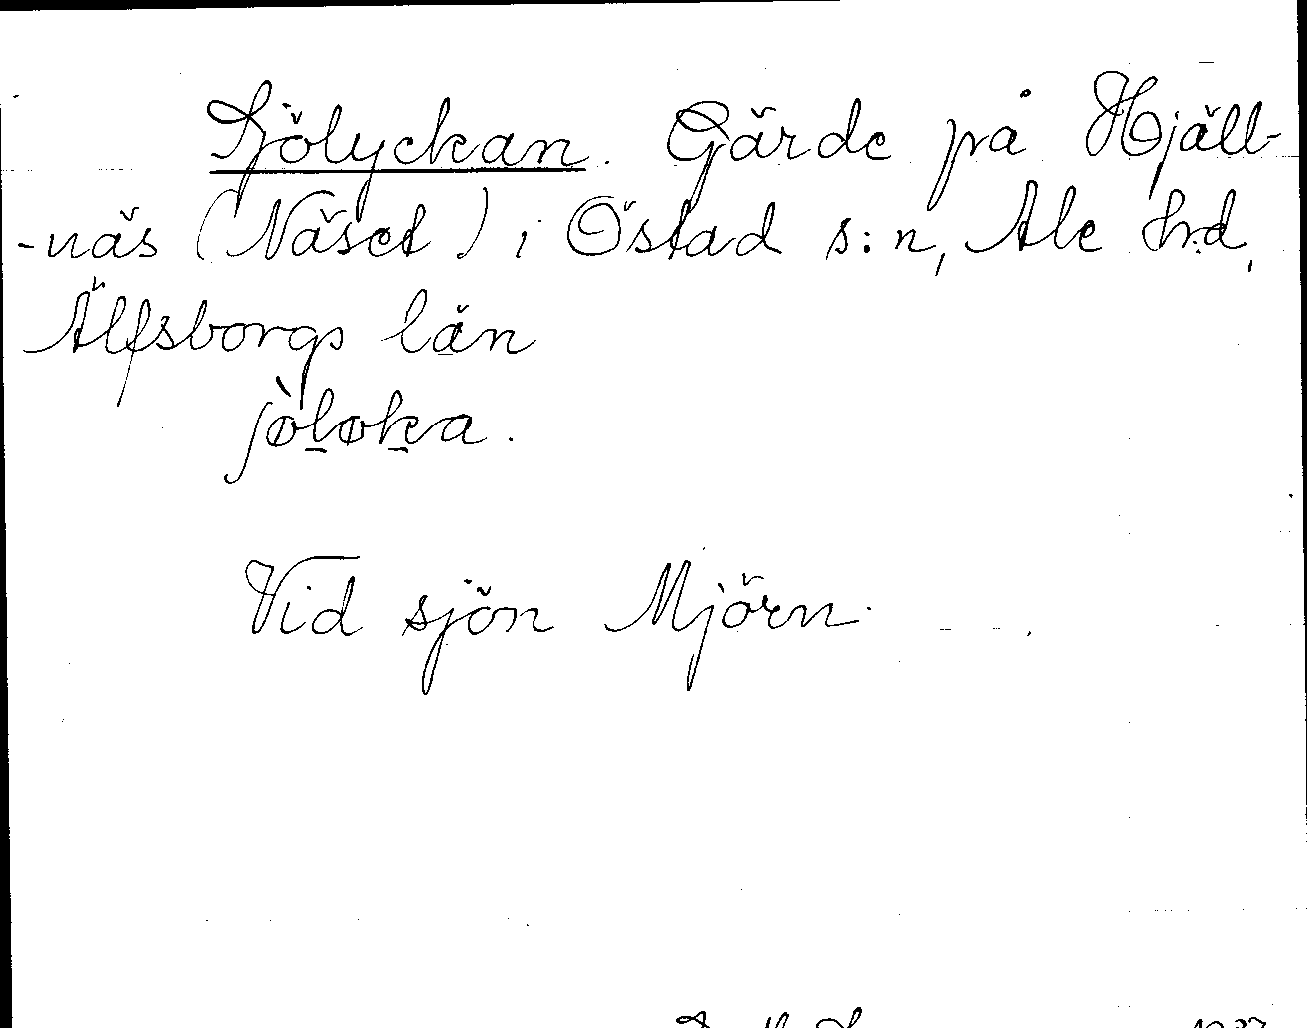 Sjölyckan. Gärde på Hjäll-
-näs (Näset) i Östad s:n, Ale hrd,
Älfsborgs län
ʃø̀løka.
Vid sjön Mjörn.